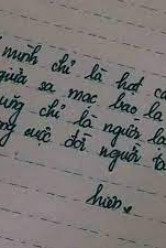 mình chỉ là hạt cá
giữa sa mạc bao la
cũng chỉ là người lạ
ng cuộc đời người ta
hiên